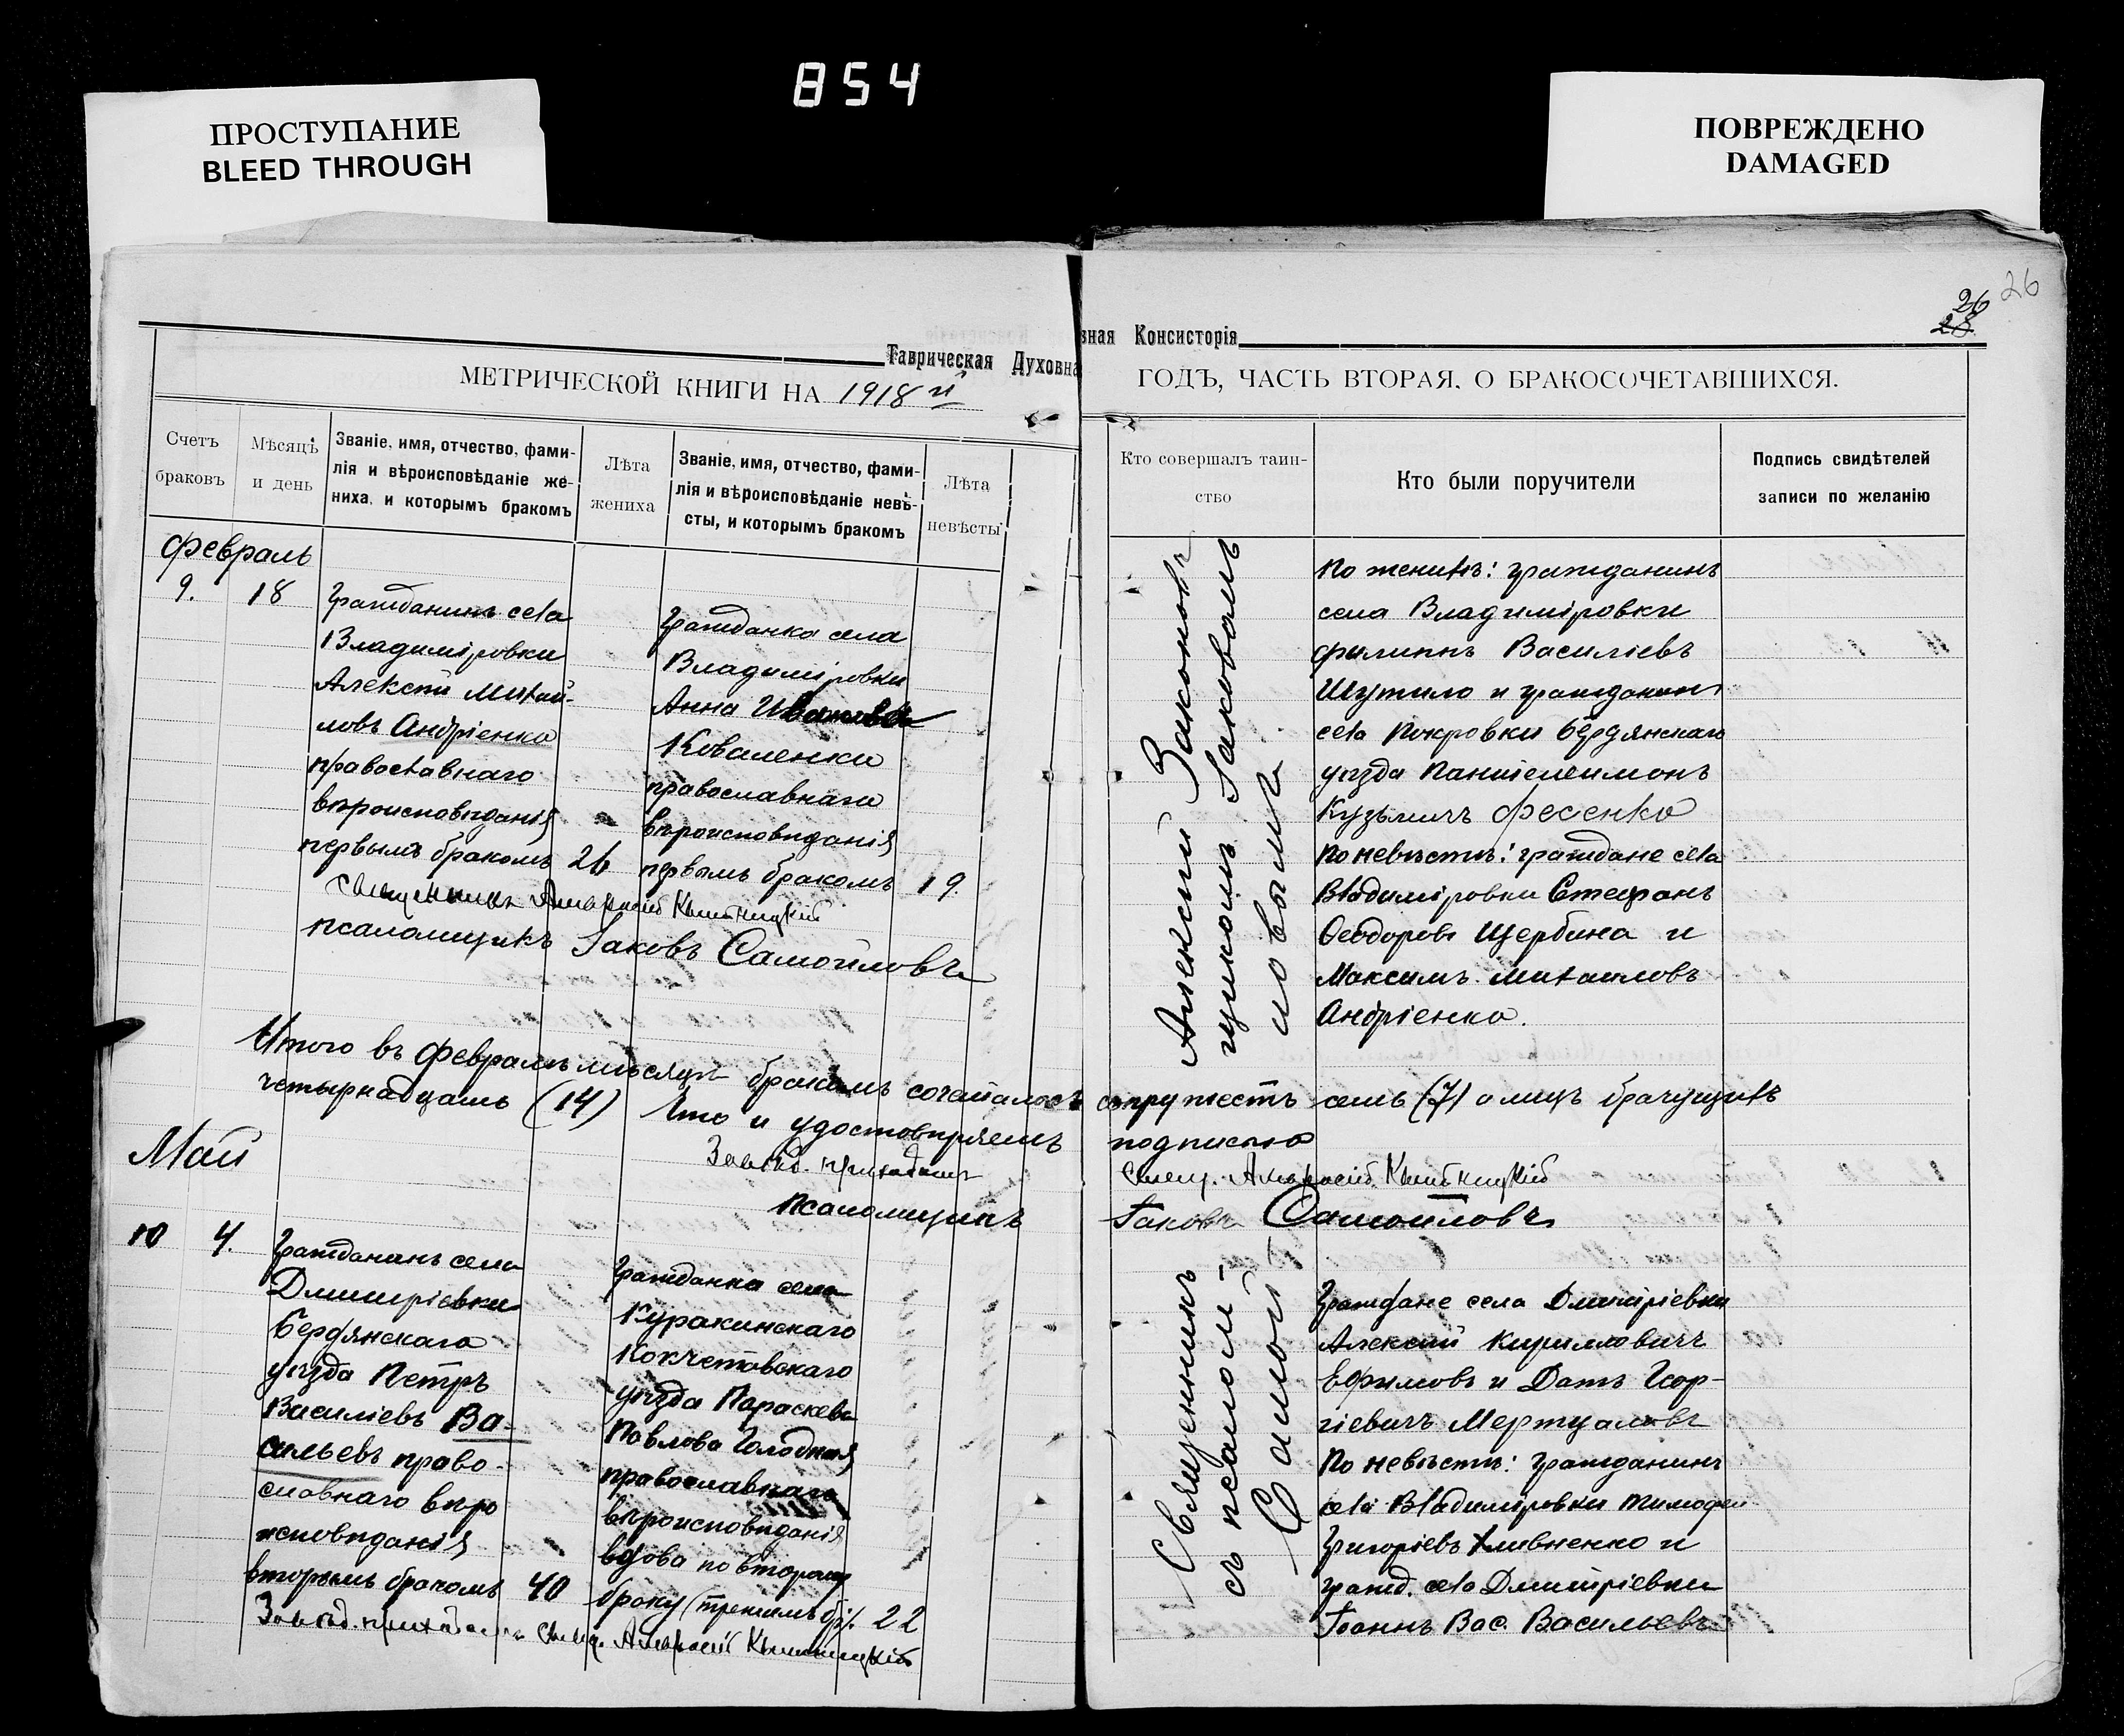 854
ПРОСТУПАНИЕ
BLEED THROUGH
ПОВРЕЖДЕНО
DAMAGED
26
26
28
Таврическая Духовная Консисторія
МЕТРИЧЕСКОЙ КНИГИ НА 1918 й ГОДЪ, ЧАСТЬ ВТОРАЯ, О БРАКОСОЧЕТАВШИХСЯ.
Счетъ
браковъ
Мѣсяцъ
и день
Званіе, имя, отчество, фами-
лія и вѣроисповѣданіе же-
ниха, и которымъ бракомъ
Лѣта
жениха
Званіе, имя, отчество, фами-
лія и вѣроисповѣданіе невѣ-
сты, и которымъ бракомъ
Лѣта
невѣсты
Кто совершалъ таин-
ство
Кто были поручители
Подпись свидѣтелей
записи по желанію
Февраль
9.
18
Гражданинъ села
Владиміровки
Алексѣй Михай-
ловъ Андріенко
православнаго
вѣроисповѣданія
первымъ бракомъ
26
Гражданка села
Владиміровки
Анна Иванова
Коваленко
православнаго
вѣроисповѣданія
первымъ бракомъ
19.
Священникъ
псаломщикъ Іаковъ Самойловъ
Алексѣй
Іаковомъ
По женихѣ: гражданинъ
села Владиміровки
Филиппъ Василіевъ
Шутило и гражданинъ
села Покровки Бердянскаго
уѣзда Пантелеимонъ
Кузьмичъ Фесенко
По невѣстѣ: граждане села
Владиміровки Стефанъ
Ѳеодоровъ Щербина и
Максимъ Михаиловъ
Андріенко.
Итого въ Февралѣ мѣсяцѣ бракомъ сочеталось супружествъ семь (7) а лицъ брачущихъ
четырнадцать (14) Что и удостовѣряемъ подписью
Завѣд. приходомъ Свящ.
Псаломщикъ Іаковъ Самойловъ
Май
10
4.
Гражданинъ села
Дмитріевки
Бердянскаго
уѣзда Петръ
Василіевъ Ва-
сильевъ право-
славнаго вѣро
исповѣданія
вторымъ бракомъ
40
Гражданка села
Куракинскаго
Кокчетавскаго
уѣзда Параскева
Павлова Голодная
православнаго
вѣроисповѣданія
вдова по второму
браку (третьимъ бр.)
22
Завѣд. приходомъ Свящ.
Священникъ
съ псалом-
Самой
Граждане села Дмитріевки
Алексѣй Кирилловичъ
Ефимовъ и Геор-
гіевичъ Мертцаловъ
По невѣстѣ: Гражданинъ
села Владиміровки Тимофей
Григоріевъ Хливненко и
гражд. села Дмитріевки
Іоаннъ Вас. Васильевъ